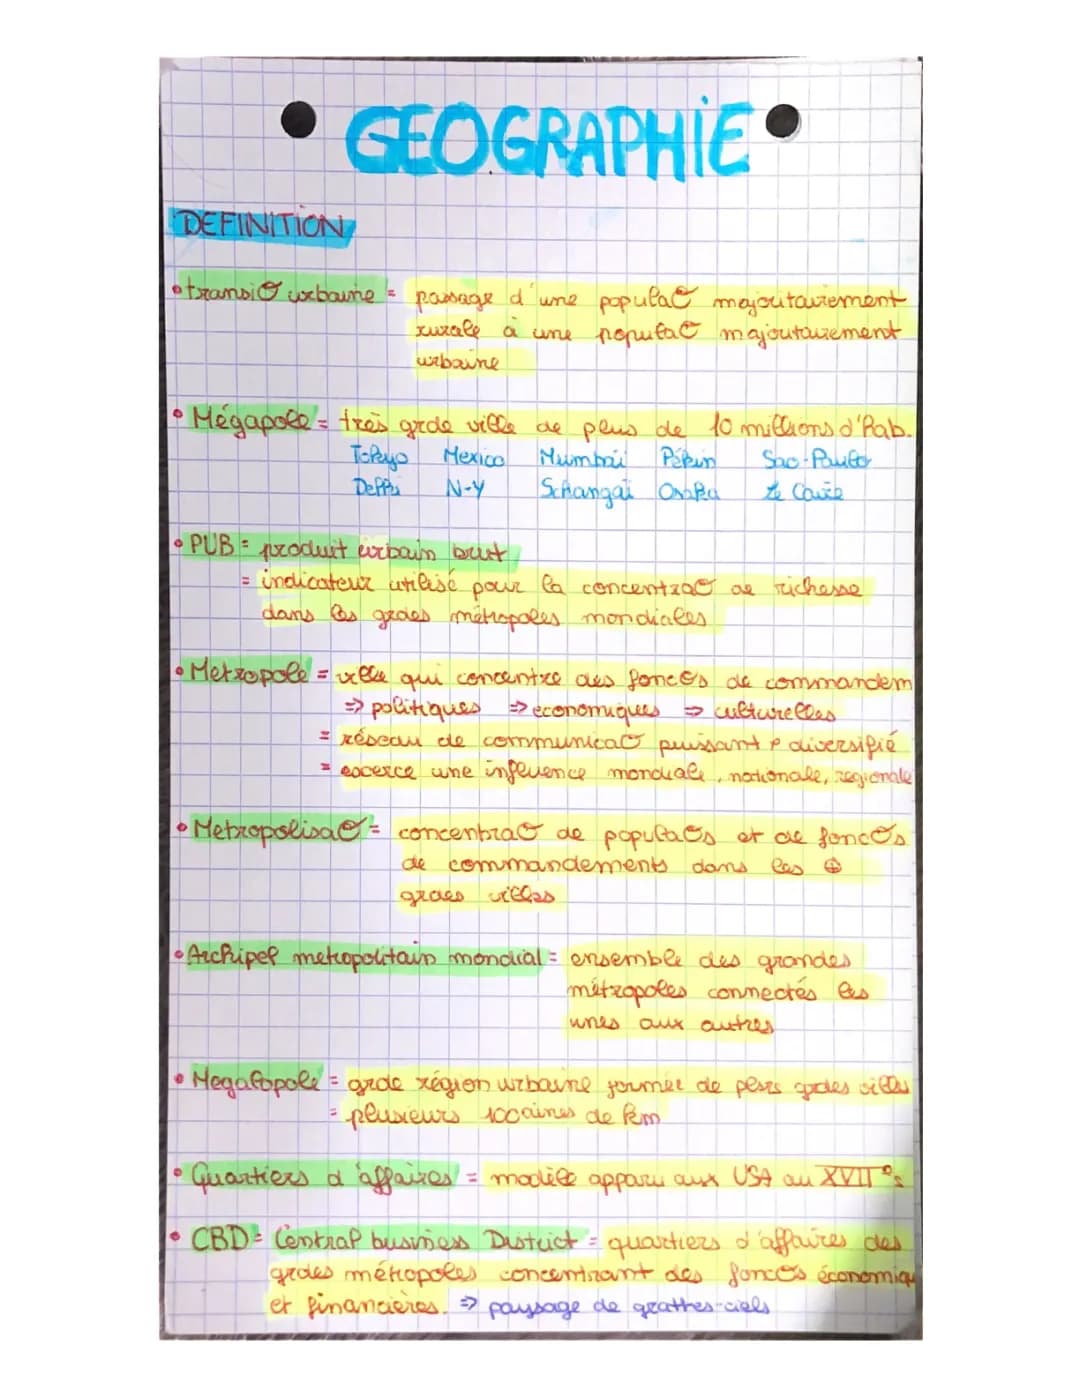 GEOGRAPHIE
DEFINITION
• transiO urbaine = passage d'une populaO majoritairement
rurale à une populaO majoritairement
urbaine
• Mégapole = très grde ville de plus de 10 millions d'hab.
Tokyo Mexico Mumbai Pékin Sao-Paulo
Delhi N-Y Schangaï Osaka Le Caire
• PUB = produit urbain brut
= indicateur utilisé pour la concentraO de richesse
dans les grdes métropoles mondiales
• Metropole = ville qui concentre des foncOs de commandem
⇒ politiques ⇒ economiques ⇒ culturelles
= réseau de communicaO puissant & diversifié
= exerce une influence mondiale, nationale, regionale
• MetropolisaO = concentraO de populaOs et de foncOs
de commandements dans les ⊕
grdes villes
• Archipel metropolitain mondial = ensemble des grandes
métropoles connectés les
unes aux autres
• Megalopole = grde région urbaine formée de plsrs grdes villes
= plusieurs 100aines de km
• Quartiers d'affaires = modèle apparu aux USA au XVII°s
• CBD = Central business District = quartiers d'affaires des
grdes métropoles concentrant des foncOs économiqu
et financières. ⇒ paysage de grattes-ciels